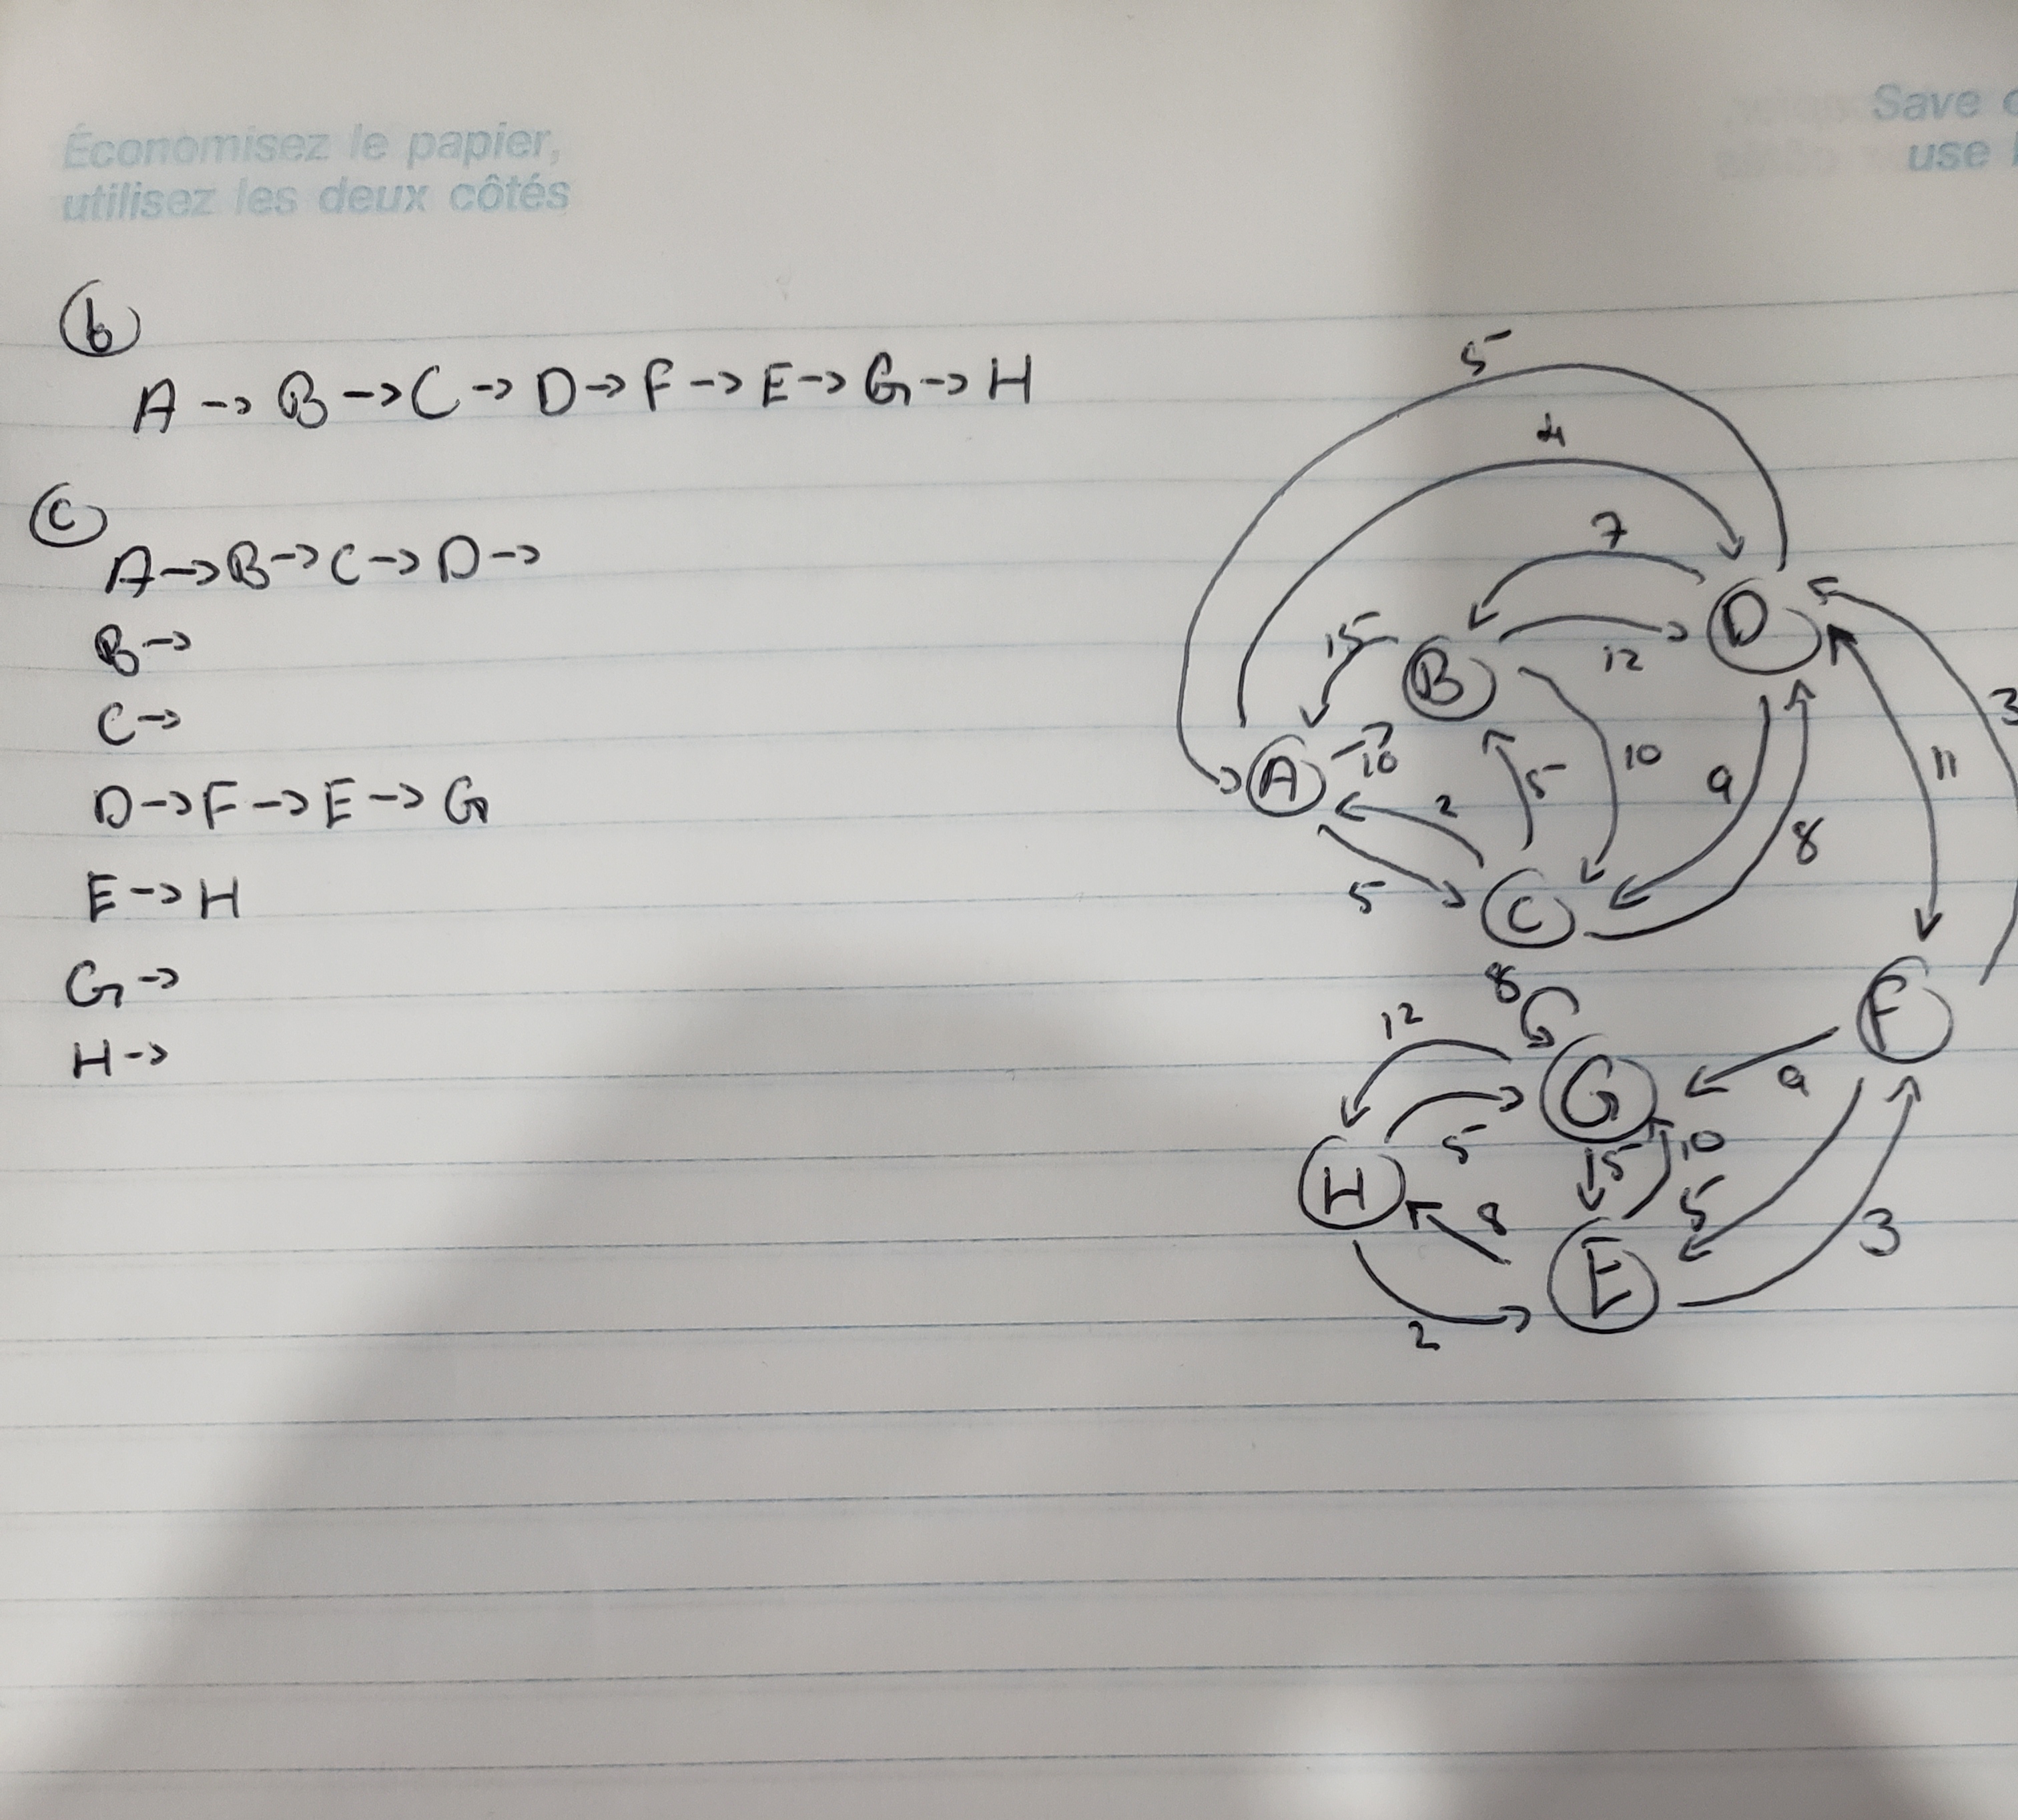 Économisez le papier,
utilisez les deux côtés
Save
use
b
A -> B -> C -> D -> F -> E -> G -> H
c
A -> B -> C -> D ->
B ->
C ->
D -> F -> E -> G
E -> H
G ->
H ->
5
4
7
D
15
12
B
3
A
10
10
11
2
5
9
8
5
C
8
F
12
G
9
5
15
10
H
8
5
E
3
2